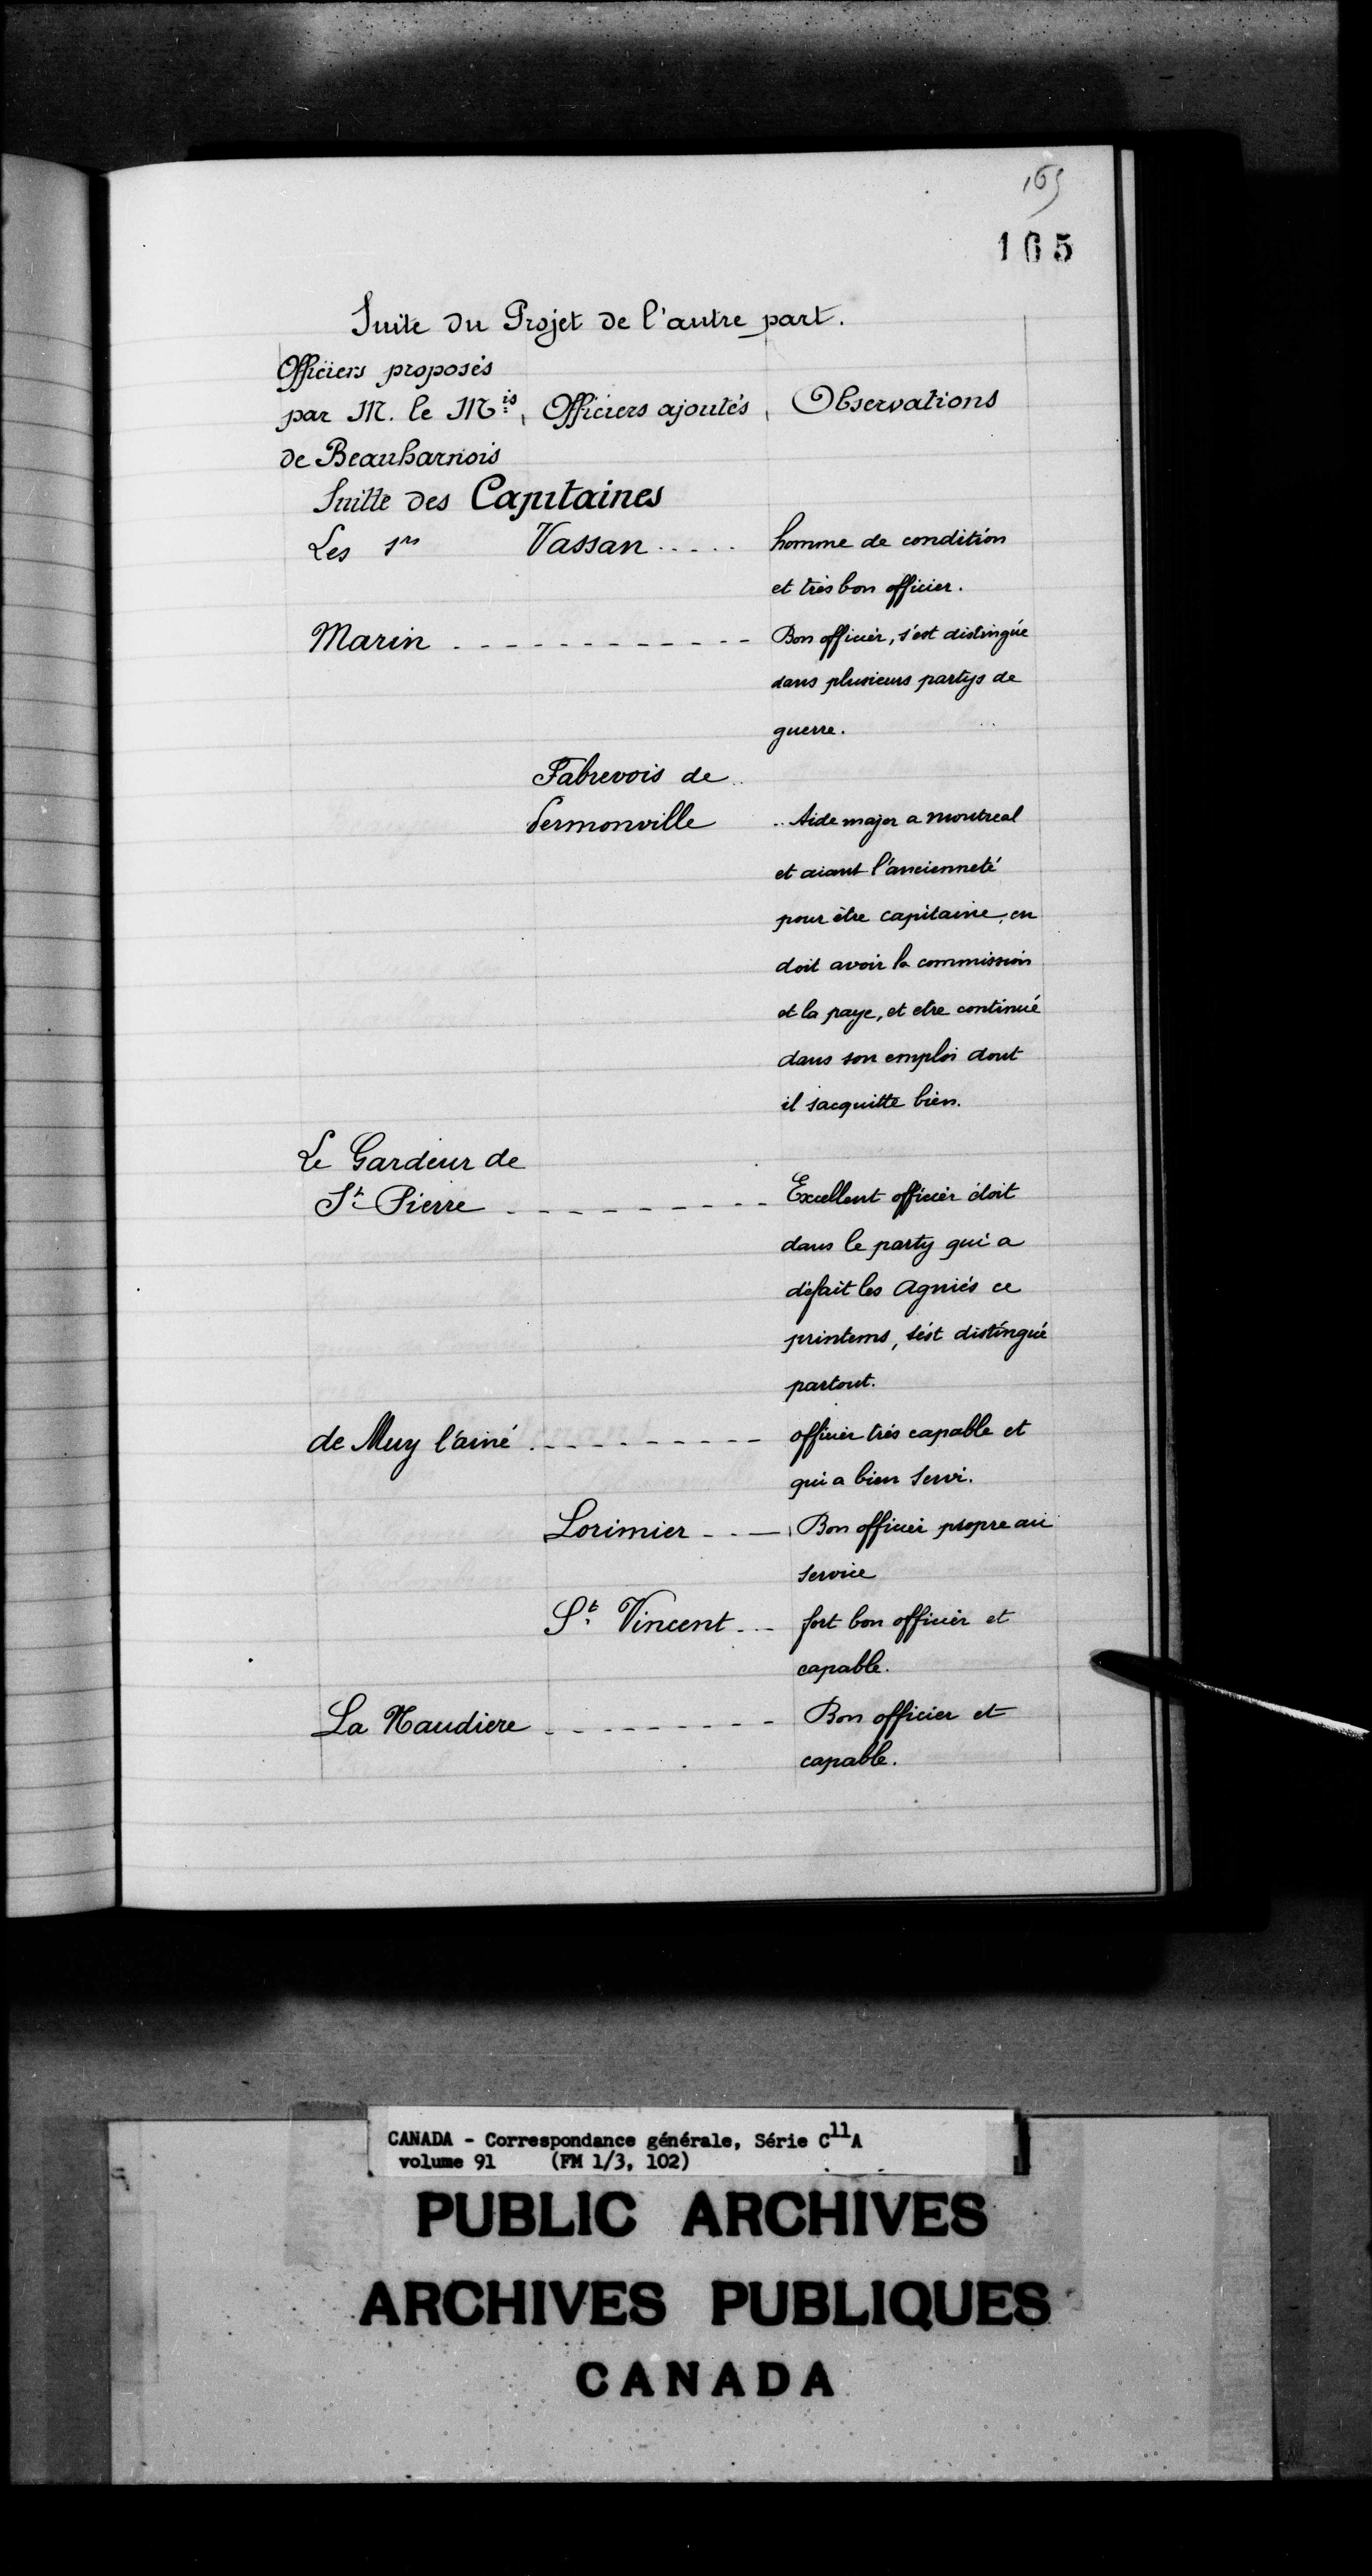 165
165
Suite du Projet de l'autre part.
Officiers proposés
par M. le Mis Officiers ajoutés Observations
de Beauharnois
Suitte des Capitaines
Les srs Vassan ..... homme de condition
et très bon officier.
Marin ------------ Bon officier, s'est distingué
dans plusieurs partys de
guerre.
Fabrevois de
Sermonville .. Aide major a montreal
et aiant l'ancienneté
pour être capitaine, en
doit avoir la commission
et la paye, et etre continué
dans son emploi dont
il sacquitte bien.
Le Gardeur de
St Pierre ---------- Excellent officier étoit
dans le party qui a
défait les Agniés ce
printems, s'est distingué
partout.
de Muy l'ainé ---------- officier très capable et
qui a bien servi.
Lorimier --- Bon officier propre au
service
St Vincent --- fort bon officier et
capable.
La Naudiere --------- Bon officier et
capable.
CANADA - Correspondance générale, Série C11A
volume 91 (FM 1/3, 102)
PUBLIC ARCHIVES
ARCHIVES PUBLIQUES
CANADA